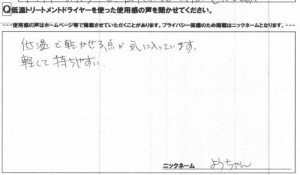 Q低温トリートメントドライヤーを使った使用感の声を聞かせてください。
---使用感の声はホームページ等で掲載させていただくことがあります。プライバシー保護のため掲載はニックネームとなります。---
低温で乾かせる点が気に入っています。
軽くて持ちやすい.
ニックネーム ようちゃん